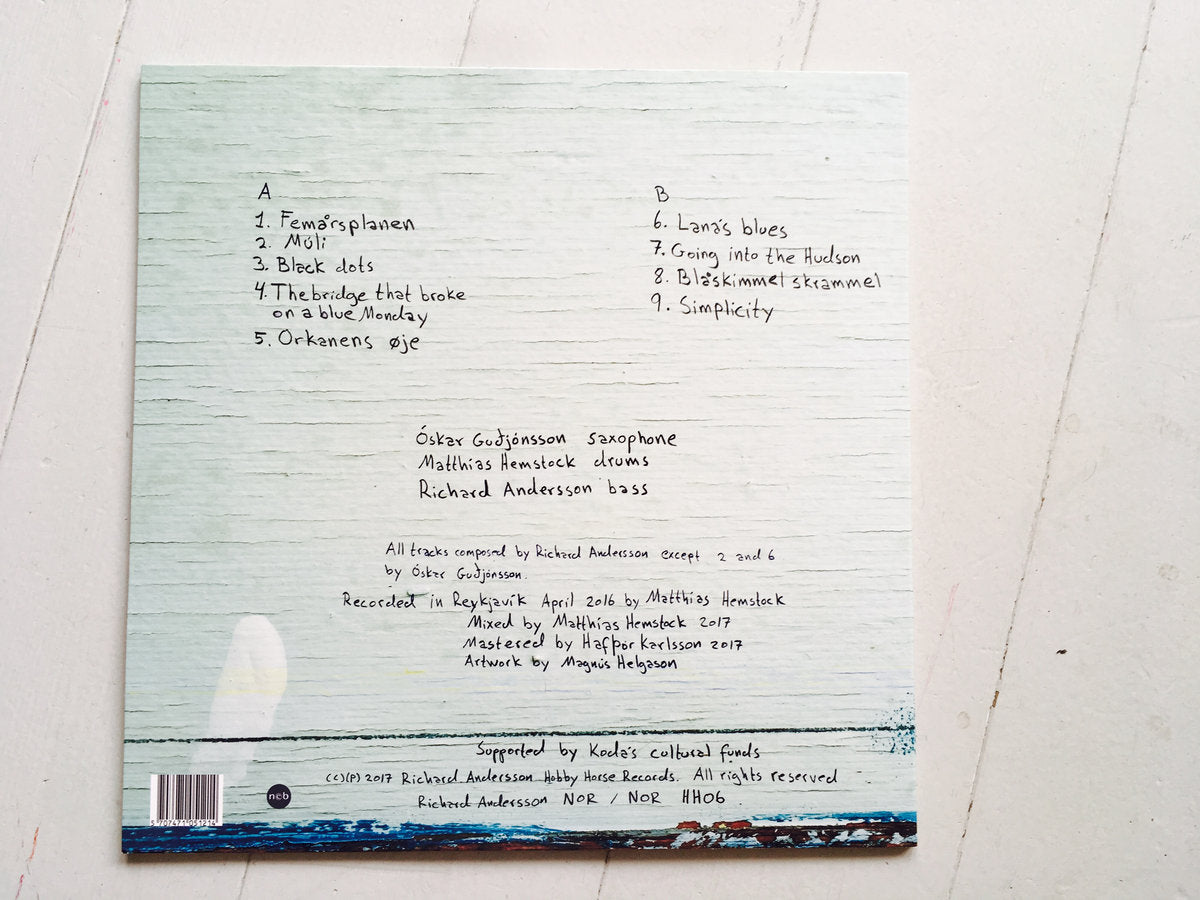 A
1. Femårsplanen
2. Múli
3. Black dots
4. The bridge that broke
on a blue Monday
5. Orkanens øje
B
6. Lana's blues
7. Going into the Hudson
8. Blåskimmel skrammel
9. Simplicity
Óskar Guðjónsson saxophone
Matthías Hemstock drums
Richard Andersson bass
All tracks composed by Richard Andersson except 2 and 6
by Óskar Guðjónsson.
Recorded in Reykjavík April 2016 by Matthías Hemstock
Mixed by Matthías Hemstock 2017
Mastered by Hafþór Karlsson 2017
Artwork by Magnús Helgason
Supported by Koda's cultural funds
(C)(P) 2017 Richard Andersson Hobby Horse Records. All rights reserved
Richard Andersson NOR / NOR HH06
5 707471 051214
ncb